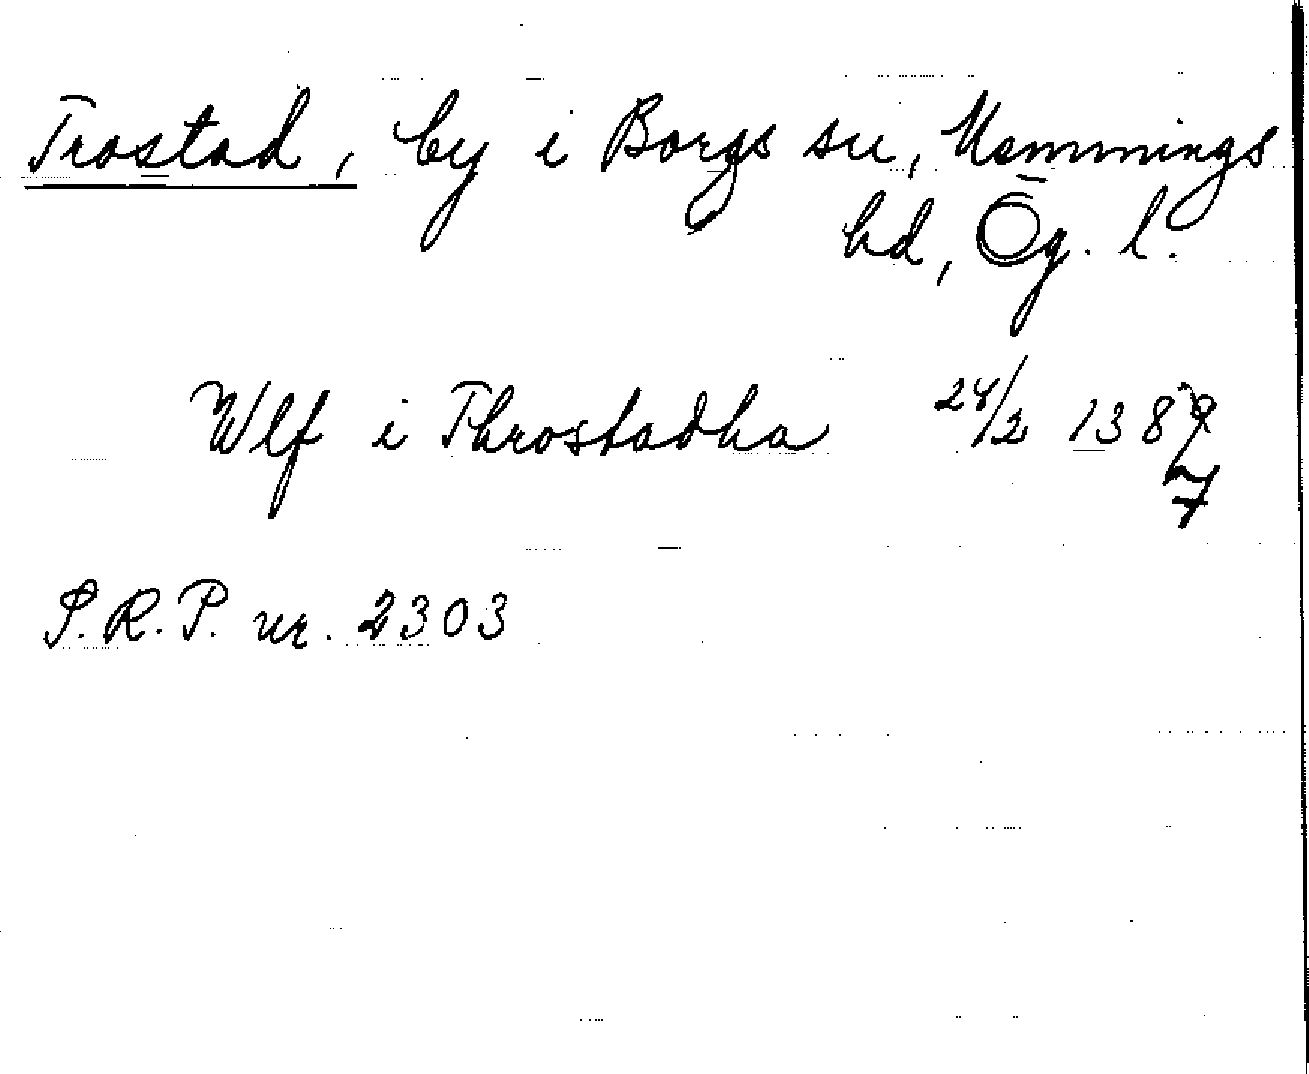 Trostad, by i Borgs sn, Memmings
hd, Ög. l.
Wlf i Throstadha 24/2 1389
7
S.R.P. nr. 2303